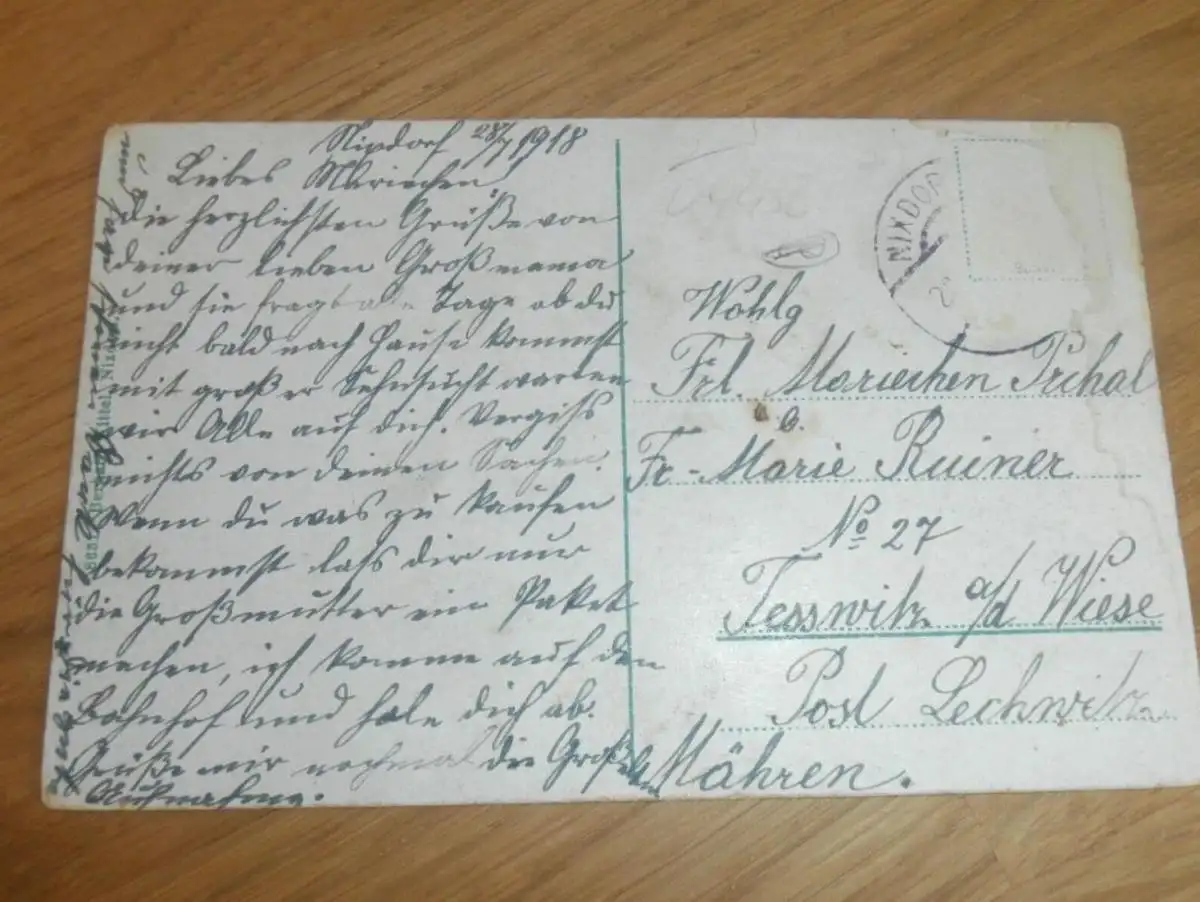 Nixdorf 28/7 1918
Liebes Mariechen
die herzlichsten Grüße von
deiner lieben Großmama
und sie fragt alle Tage ob du
nicht bald nach Hause kommst
mit großer Sehnsucht warten
wir Alle auf dich. Vergiß
nichts von deinen Sachen.
Wenn du was zu kaufen
bekommst laß dir nur
die Großmutter ein Paket
machen, ich komme auf den
Bahnhof und hole dich ab.
Grüße mir nochmal die Groß
NIXDO
Wohlg
Frl. Mariechen Prchal
b.
Fr. Marie Ruiner
No 27
Tesswitz a/d Wiese
Post Lechwitz
Mähren.